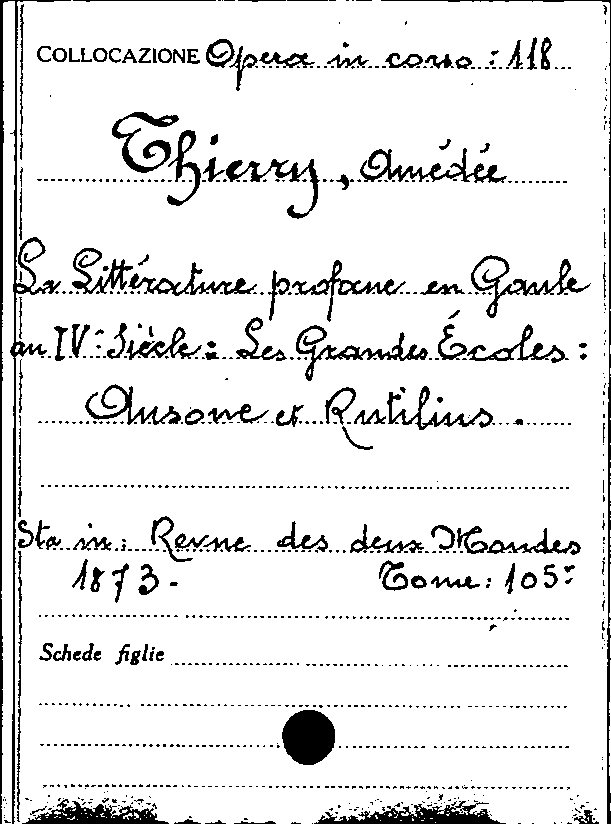 COLLOCAZIONE Opera in corso: 118
Thierry, Amédée
La Littérature profane en Gaule
au IV.e Siècle: Les Grandes Écoles:
Ausone et Rutilius.
Sta in: Revue des deux Mondes
1873- Tome: 105°
Schede figlie